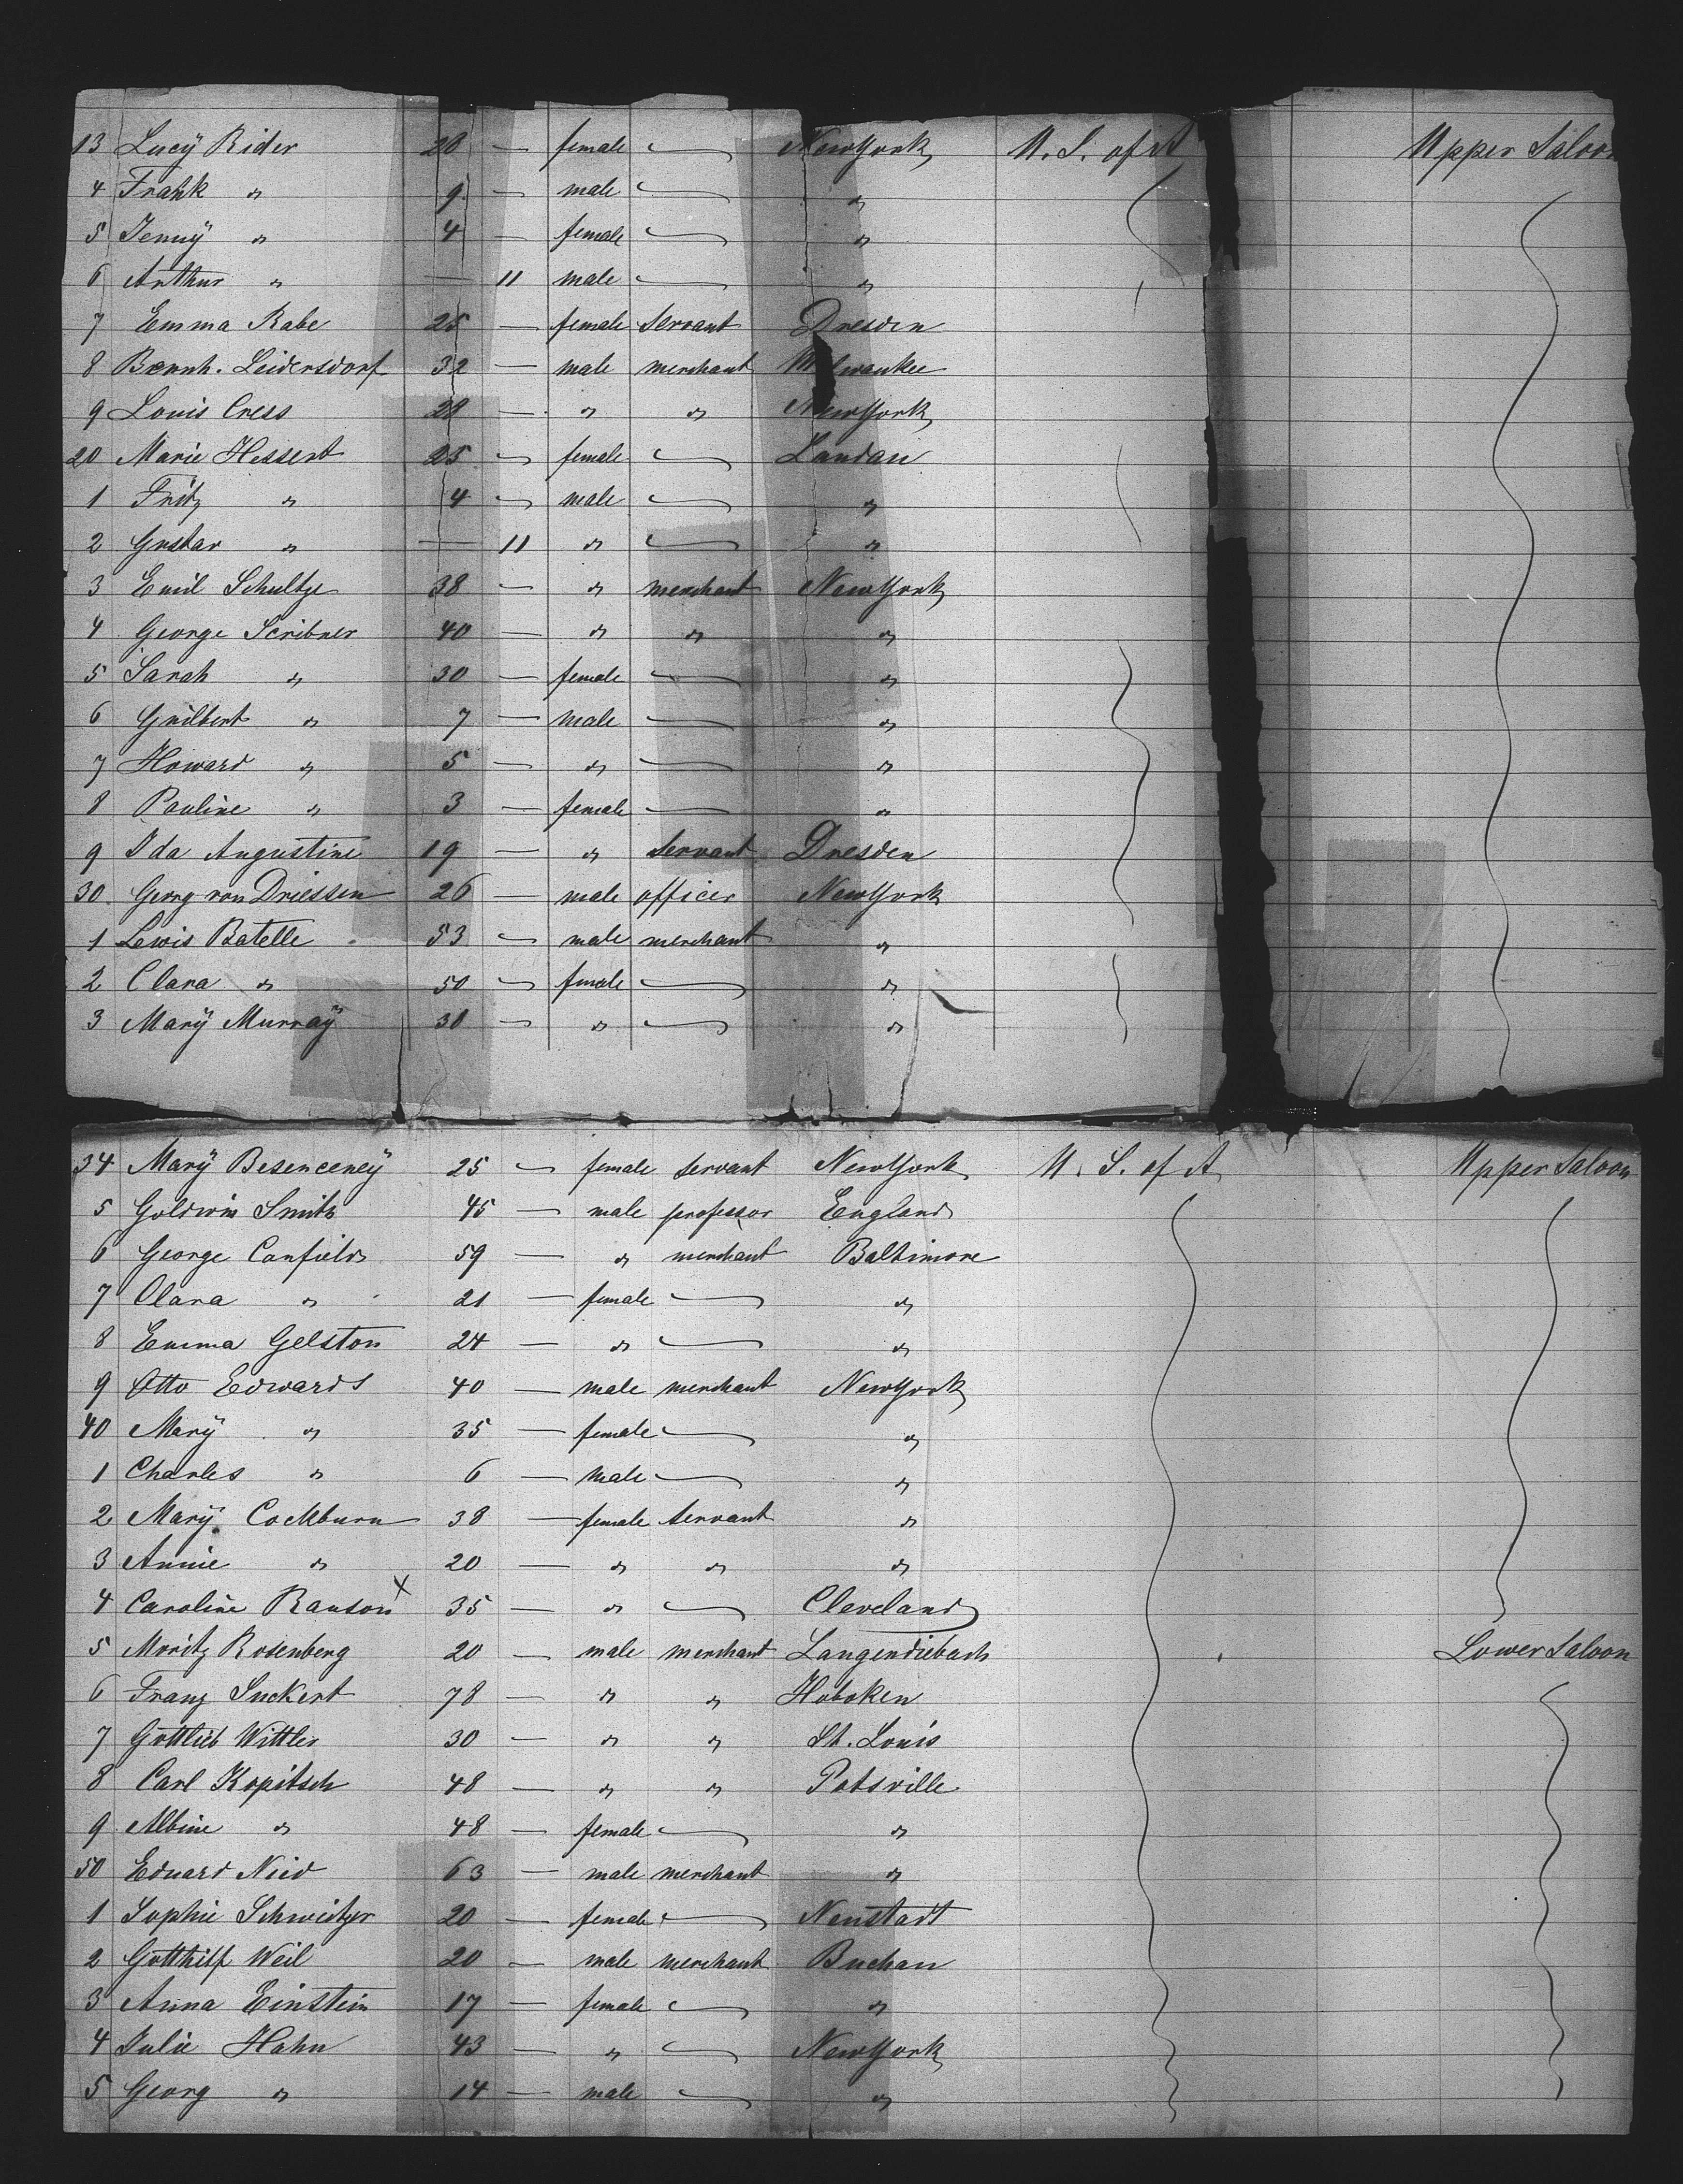 13 Lucÿ Rider 28 — female — New York U. S. of A Upper Saloon
4 Frank " 9 — male — "
5 Jennÿ " 4 — female — "
6 Arthur " — 11 male — "
7 Emma Rabe 25 — female servant Dresden
8 Bernh. Leidersdorf 32 — male merchant Milwaukee
9 Louis Cress 28 — " " New York
20 Marie Hessert 25 — female — Landau
1 Fritz " 4 — male — "
2 Gustav " — 11 " — "
3 Emil Schultze 38 — " merchant New York
4 George Scribner 40 — " " "
5 Sarah " 30 — female — "
6 Guilbert " 7 — male — "
7 Howard " 5 — " — "
8 Pauline " 3 — female — "
9 Ida Augustine 19 — " servant Dresden
30 Georg von Driessen 26 — male officer New York
1 Lewis Batelle 53 — male merchant "
2 Clara " 50 — female — "
3 Marÿ Murraÿ 30 — " — "
34 Marÿ Besenceneÿ 25 — female servant New York U. S. of A Upper Saloon
5 Goldwin Smith 45 — male professor England
6 George Canfield 59 — " merchant Baltimore
7 Clara " 21 — female — "
8 Emma Gelston 24 — " — "
9 Otto Edwards 40 — male merchant New York
40 Marÿ " 35 — female — "
1 Charles " 6 — male — "
2 Marÿ Cockburn 38 — female servant "
3 Annie " 20 — " " "
4 Caroline Ranson x 35 — " — Cleveland
5 Moritz Rosenberg 20 — male merchant Langendiebach Lower Saloon
6 Franz Suckert 78 — " " Hoboken
7 Gottlieb Wittler 30 — " " St. Louis
8 Carl Kopitsch 48 — " " Potsville
9 Albine " 48 — female — "
50 Eduard Nied 63 — male merchant "
1 Sophie Schweitzer 20 — female — Neustadt
2 Gotthilf Weil 20 — male merchant Buchau
3 Anna Einstein 17 — female — "
4 Julie Hahn 43 — " — New York
5 Georg " 14 — male — "